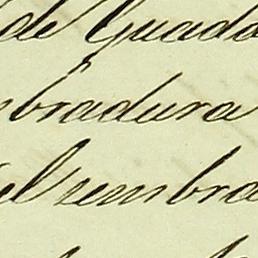 de Guada
bradura
el sembra